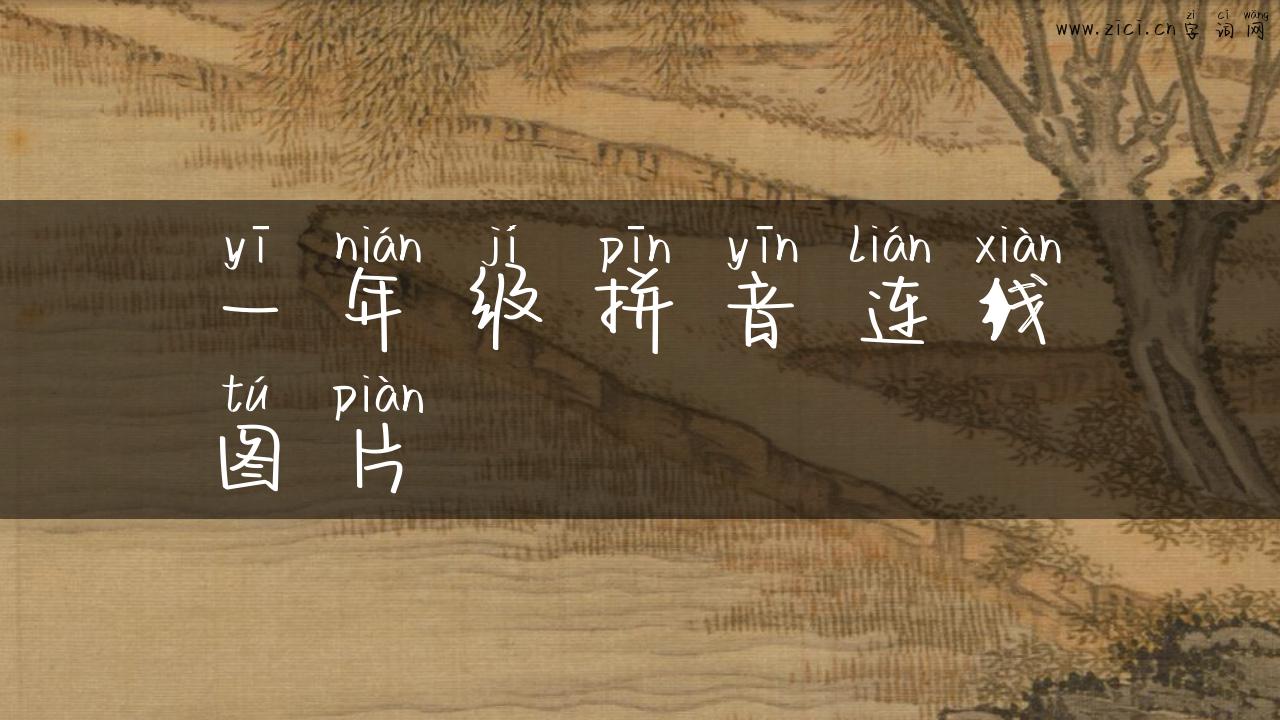 zì cí wǎng
www.zici.cn 字 词 网
yī nián jí pīn yīn lián xiàn
一 年 级 拼 音 连 线
tú piàn
图 片